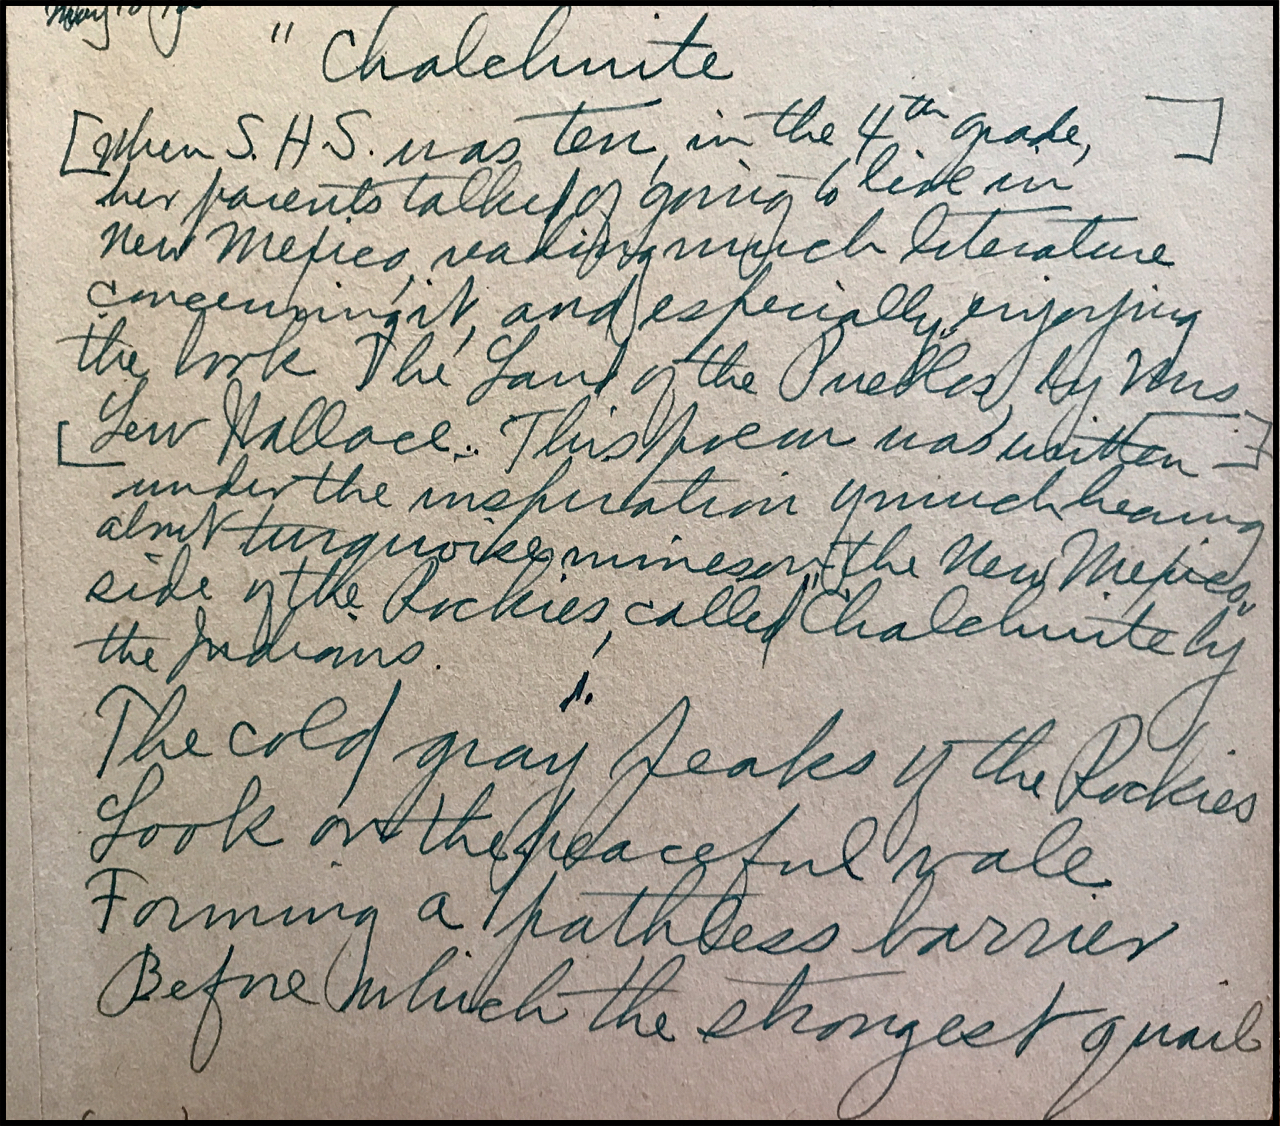 May 10, 19
" Chalchuite
[When S. H. S. was ten, in the 4th grade, ]
her parents talked of going to live in
New Mexico, reading much literature
concerning it, and especially enjoying
the book "The Land of the Pueblos, by Mrs.
[ Lew Wallace. This poem was written ]
under the inspiration of much hearing
about turquoise mines on the New Mexico
side of the Rockies, called "Chalchuite" by
the Indians.
1.
The cold gray peaks of the Rockies
Look on the peaceful vale
Forming a pathless barrier
Before which the strongest quail